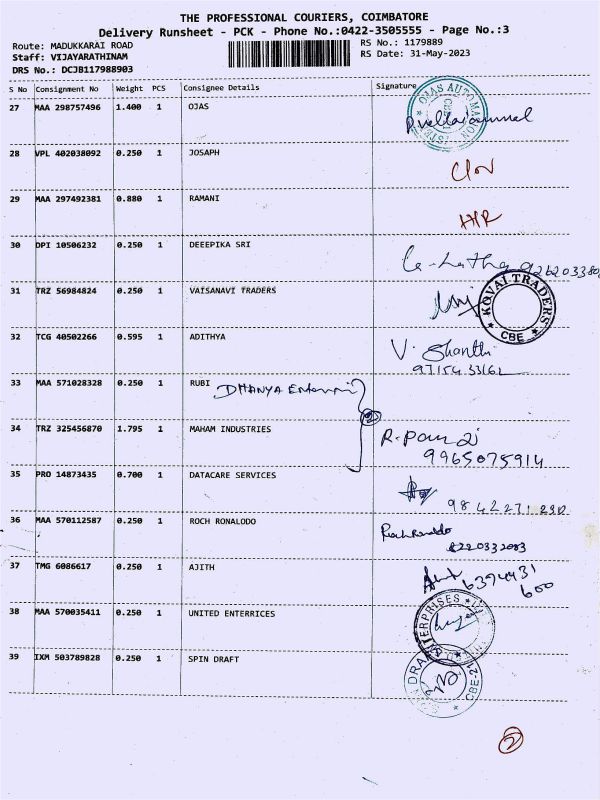 THE PROFESSIONAL COURIERS, COIMBATORE
Delivery Runsheet - PCK - Phone No.:0422-3505555 - Page No.:3
Route: MADUKKARAI ROAD
RS No.: 1179889
Staff: VIJAYARATHINAM
RS Date: 31-May-2023
DRS No.: DCJB117988903
S No Consignment No Weight PCS Consignee Details Signature
27 MAA 298757496 1.400 1 OJAS
OJAS AUTOMATION
28 VPL 402038092 0.250 1 JOSAPH
29 MAA 297492381 0.880 1 RAMANI
30 DPI 10506232 0.250 1 DEEEPIKA SRI
31 TRZ 56984824 0.250 1 VAISANAVI TRADERS
KOVAI TRADERS
CBE
32 TCG 40502266 0.595 1 ADITHYA
V. Shanthi
33 MAA 571028328 0.250 1 RUBI
DHANYA
34 TRZ 325456870 1.795 1 MAHAM INDUSTRIES
9965075914
35 PRO 14873435 0.700 1 DATACARE SERVICES
36 MAA 570112587 0.250 1 ROCH RONALODO
8220332083
37 TMG 6086617 0.250 1 AJITH
6394431
600
38 MAA 570035411 0.250 1 UNITED ENTERRICES
ENTERPRISES
39 IXM 503789828 0.250 1 SPIN DRAFT
CBE-21
2